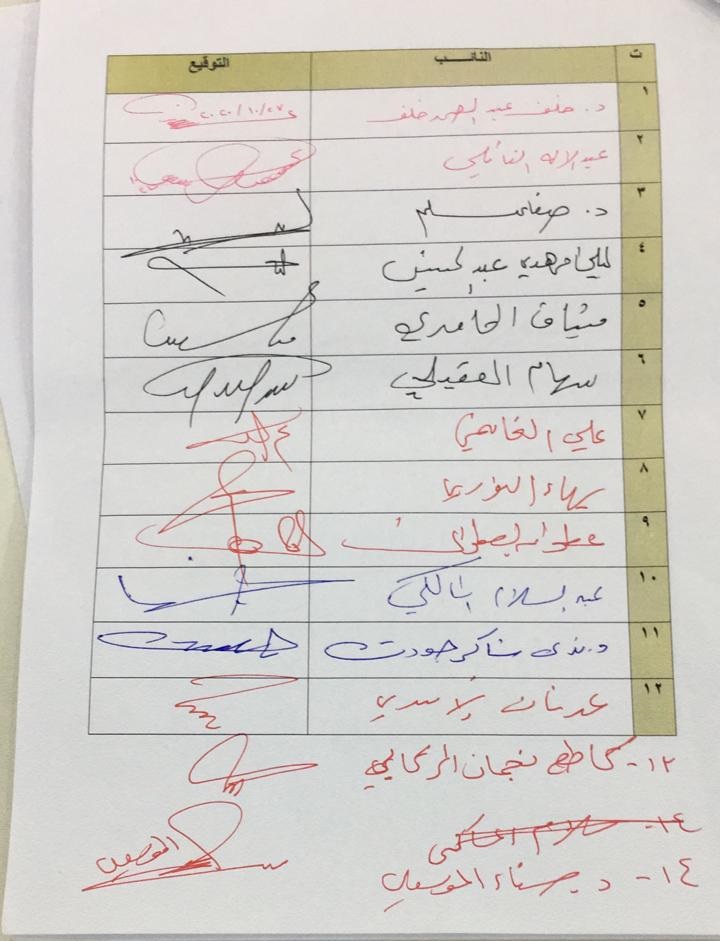 ت النائب التوقيع
١ د. خلف عبد الصمد خلف ٢٠٢٠/١٠/٢٧
٢ عبد الاله النائلي
٣ د. صفاء مسلم
٤ ليلى مهدي عبد الحسين
٥ ميثاق الحامدي
٦ سهام العقيلي
٧ علي الغانمي
٨ بهاء النوري
٩ عطوان العطواني
١٠ عبد السلام المالكي
١١ د. ندى شاكر جودت
١٢ عدنان الاسدي
١٣- كاطع نجمان الركابي
١٤-
١٤- د. سناء الموسوي